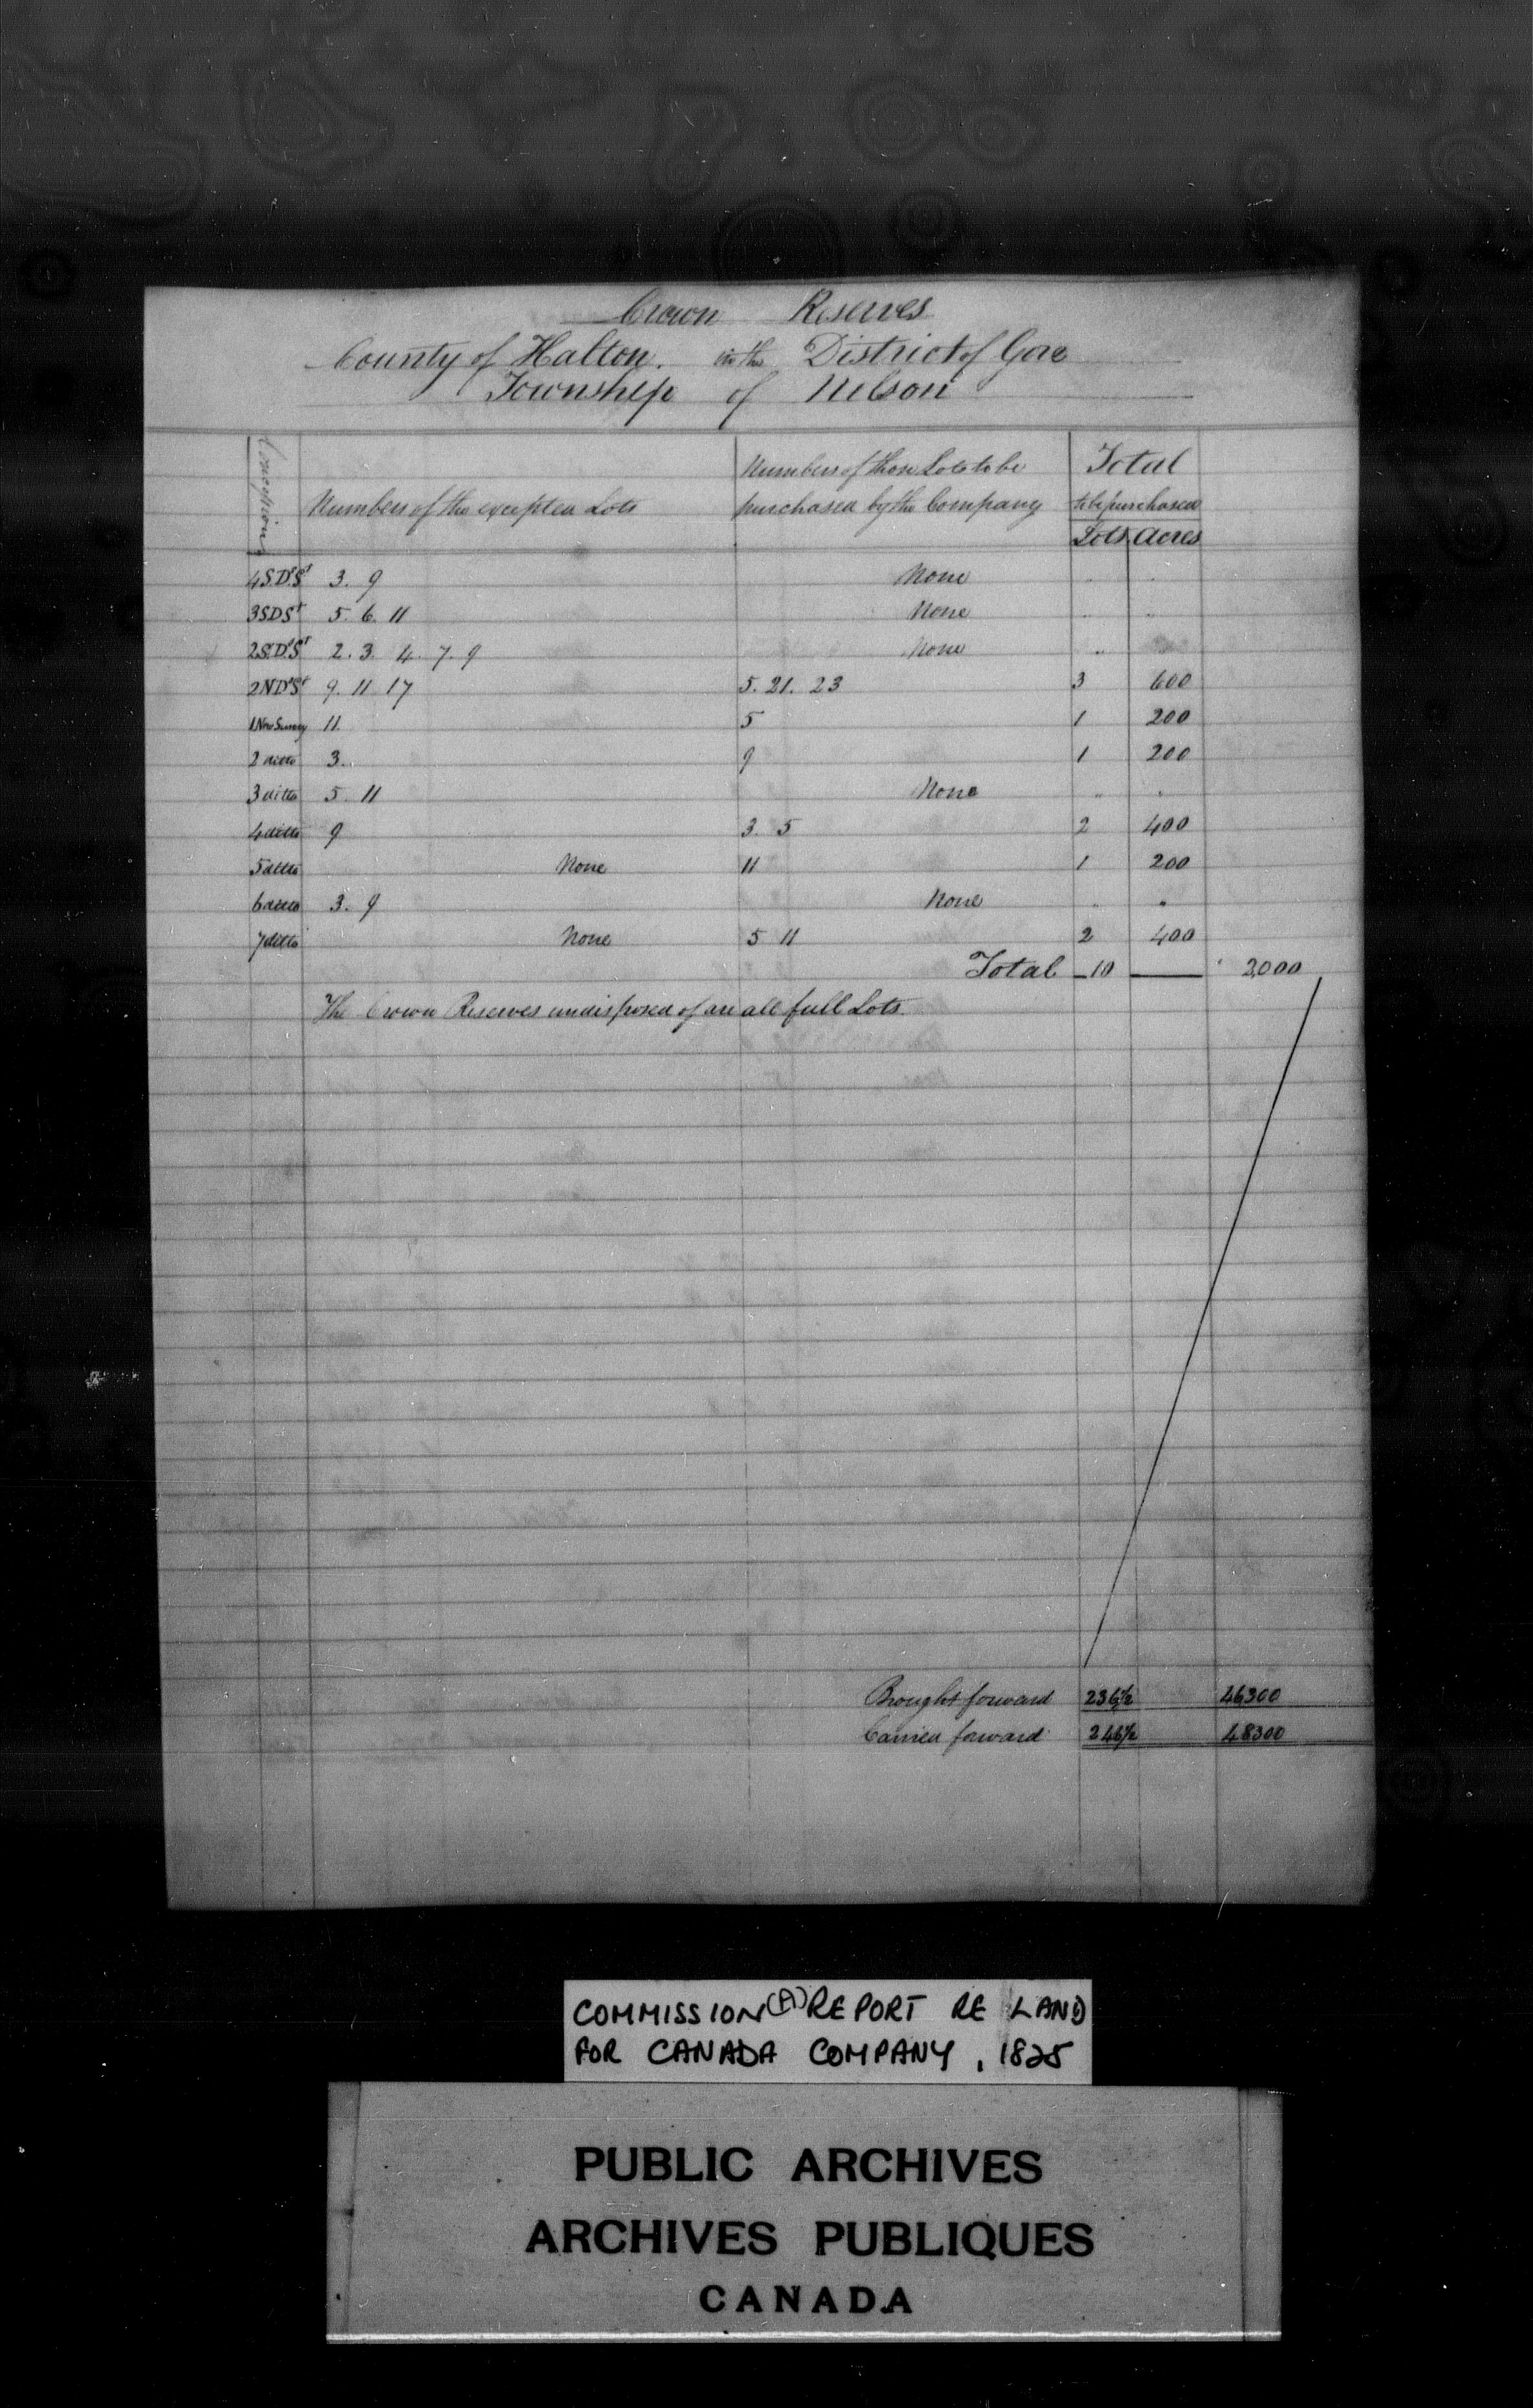 Crown Reserves
County of Halton. in the District of Gore
Township of Nelson
Concessions
Numbers of the excepted Lots
Numbers of those Lots to be purchased by the Company
Total to be purchased
Lots Acres
4 S.D.St 3. 9 None " "
3 SDSt 5. 6. 11 None " "
2 S.D.St 2. 3. 4. 7. 9 None " "
2 N D St 9. 11. 17 5. 21. 23 3 600
1 New Survey 11. 5 1 200
2 ditto 3. 9 1 200
3 ditto 5. 11 None " "
4 ditto 9 3. 5 2 400
5 ditto None 11 1 200
6 ditto 3. 9 None " "
7 ditto None 5 11 2 400
Total 10 2000
The Crown Reserves undisposed of are all full Lots.
Brought forward 236½ 46300
Carried forward 246½ 48300
COMMISSION (A) REPORT RE LAND
FOR CANADA COMPANY, 1825
PUBLIC ARCHIVES
ARCHIVES PUBLIQUES
CANADA